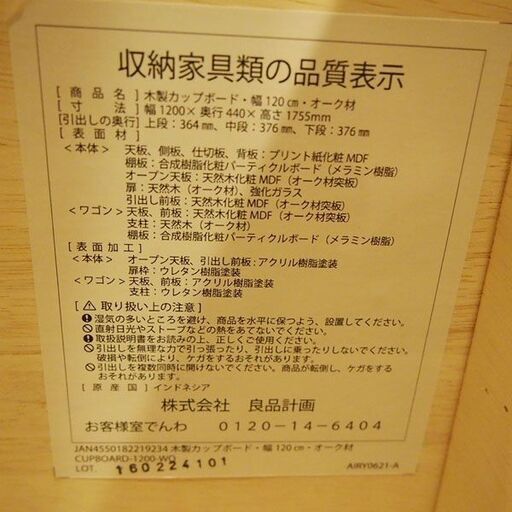 収納家具類の品質表示
[ 商 品 名 ] 木製カップボード・幅120㎝・オーク材
[ 寸 法 ] 幅1200×奥行440×高さ1755mm
[引出しの奥行] 上段：364㎜、中段：376㎜、下段：376㎜
[ 表 面 材 ]
＜本体＞ 天板、側板、仕切板、背板：プリント紙化粧MDF
棚板：合成樹脂化粧パーティクルボード（メラミン樹脂）
オープン天板：天然木化粧MDF（オーク材突板）
扉：天然木（オーク材）、強化ガラス
引出し前板：天然木化粧MDF（オーク材突板）
＜ワゴン＞ 天板、前板：天然木化粧MDF（オーク材突板）
支柱：天然木（オーク材）
棚板：合成樹脂化粧パーティクルボード（メラミン樹脂）
[ 表 面 加 工 ]
＜本体＞ オープン天板、引出し前板：アクリル樹脂塗装
扉枠：ウレタン樹脂塗装
＜ワゴン＞ 天板、前板：アクリル樹脂塗装
支柱：ウレタン樹脂塗装
[ 取り扱い上の注意 ]
湿気の多いところを避け、商品を水平に保つよう、設置してください。
直射日光やストーブなどの熱をあてないでください。
取扱説明書をお読みの上、正しくご使用ください。
引出しを無理な力で引っ張ったり、引出しに乗ったりしないでください。
破損や転倒により、ケガをするおそれがあります。
引出しを複数同時に開けないでください。商品が転倒し、ケガをする
おそれがあります。
[ 原 産 国 ] インドネシア
株式会社 良品計画
お客様室でんわ 0120-14-6404
JAN4550182219234 木製カップボード・幅120㎝・オーク材
CUPBOARD-1200-WO
LOT. 160224101
AIRY0621-A